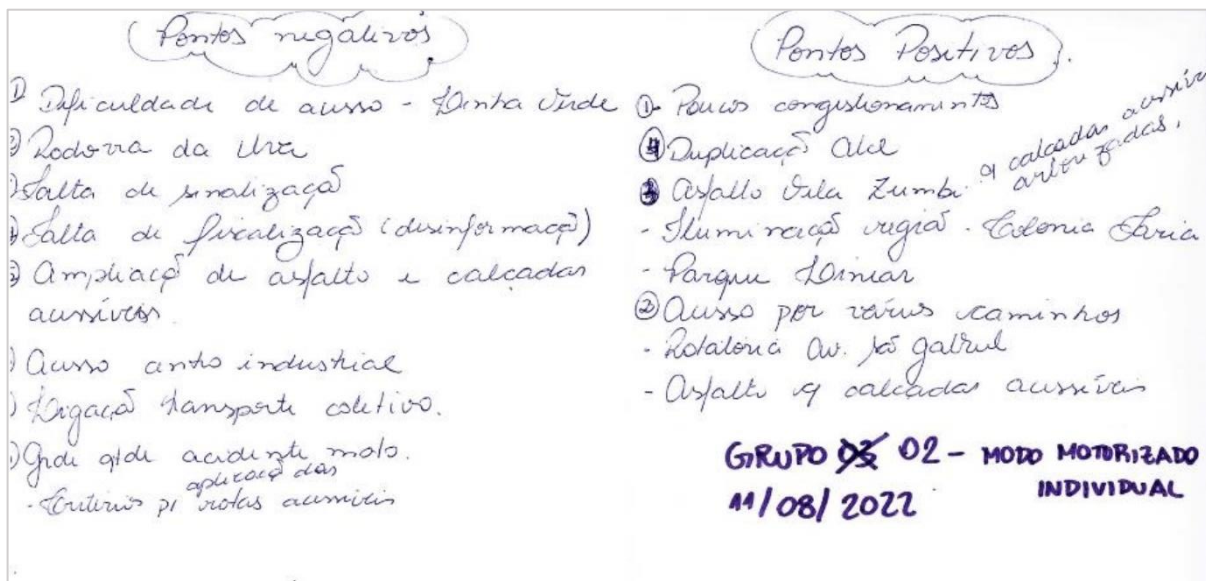 Pontos negativos
1) Dificuldade de acesso - Linha Verde
2) Rodovia da Uva
Falta de sinalização
Falta de fiscalização (desinformação)
5) Ampliação de asfalto e calçadas
acessíveis.
) Acesso centro industrial
) Ligação transporte coletivo.
) Gde qtde acidente moto.
- Critérios p/ aplicação das rotas acessíveis
Pontos Positivos.
1- Poucos congestionamentos
4 Duplicação Abel
3 Asfalto Vila Zumbi. c/ calçadas acessíveis
arborizadas,
- Iluminação região. Colonia Faria
- Parque Linear
2 Acesso por vários caminhos
- Rotatória Av. São Gabriel
- Asfalto c/ calçadas acessíveis
GRUPO 02 - MODO MOTORIZADO
INDIVIDUAL
11/08/2022